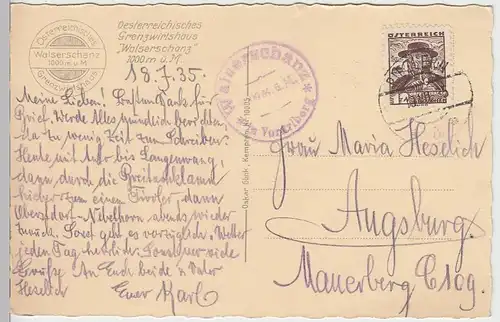 Oesterreichisches
Walserschanz
1000 m ü. M.
Grenzwirtshaus
Oesterreichisches
Grenzwirtshaus
"Walserschanz"
1000 m ü. M.
18.7.35.
Walserschanz
ÖSTERREICH
Meine Lieben! Besten Dank für
Brief. Werde Alles mündlich berichten
da zu wenig Zeit zum Schreiben.
Heute mit Auto bis Langenwang,
dann durch die Breitachklamm
hierher zu einem Tiroler, dann
Oberstdorf - Nebelhorn, abends wieder
zurück. Sonst geht es vorzüglich, Wetter
jeden Tag herrlich. Sonst nur viele
Grüsse An Euch beide u. Vater
Heselich Euer Karl
Frau Maria Heselich
Augsburg.
Mauerberg C109.